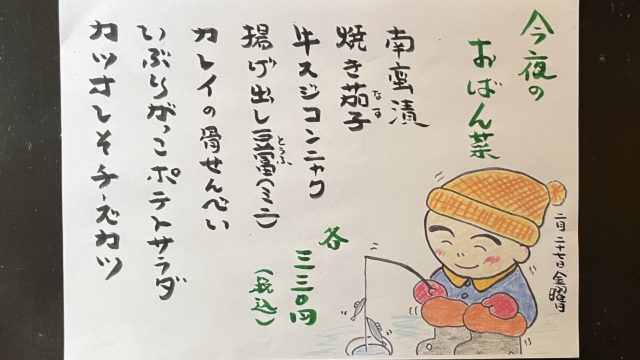 今夜の
おばん菜
南蛮漬
焼き茄子
なす
牛スジコンニャク
揚げ出し豆富(ミニ)
とうふ
カレイの骨せんべい
いぶりがっこポテトサラダ
カツオしそチーズカツ
各
三三〇円
(税込)
二月二十七日金曜日